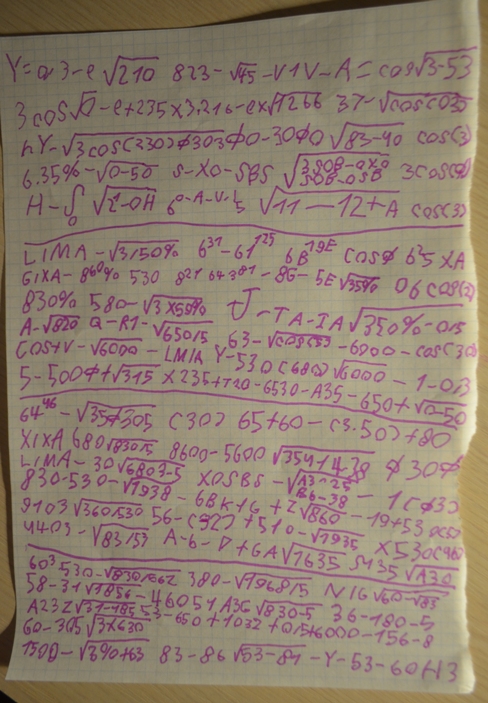 Y=α3-e√210 823-√45-V1V-A=cos√3-53
3cos√0-e+235×3,216-ex√1266 37-√cos(035
hY-√3cos(230)φ303 φ0-30φ0 √83-40 cos(3)
6.35%-√0-50 S-XO-SBS 3cos(
H-∫0 √2-0H 6 0-A-V-L 5 √11-12+A cos(3)
LIMA-√3150% 6³¹-61¹²⁵ 6B¹⁹ᴱ cosφ 6²5 XA
GIXA-860% 530 8²¹ 64381-8G-5E√35% 06cos(3)
830% 580-√3×50% J-TA-IA√350%-0,5
A-√820 a-R1-√650/5 63-√cos(53-6000-cos(30)
cos+V-√6000-LMIA Y-530(680)√6000-1-0,3
5-500φ+√315×235+720-6530-A35-650+√0-50
64⁴⁶-√35+305 (30) 65+60-(3.50)+80
XIXA 680√830/5 8600-5600√354+438 φ30φ
LIMA-30√6803-5 XOSBS-√A3^25 B6-38 -1(φ30
830-530-√1938-6BK+G+2√860-19+530
9103√360/530 56-(92)+510-√1935 ×530(960
4403-√83/53 A-6-D+GA√1635 S435√A30
60³530-√830/062 380-√1968/5 N16√60-√83
58-31√1856-46054 A3G√830-5 36-180-5
A232√37-185 53-650+1032+0,5+6000-156-8
60-305√3×630
1500-√3%+63 83-86√53-81-Y-53-60H3